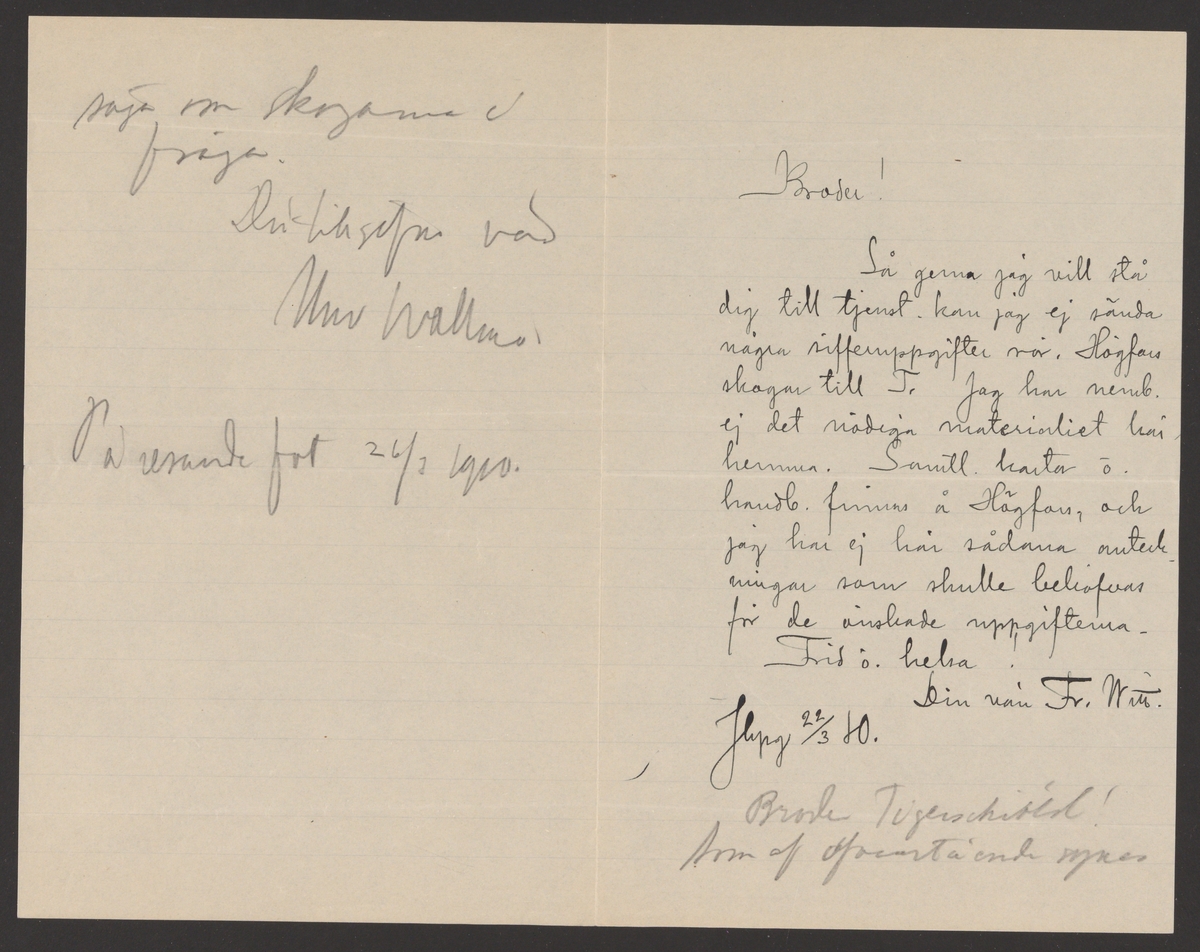 Broder!
Så gerna jag vill stå
dig till tjenst. kan jag ej sända
några sifferuppgifter rör. Högfors
skogar till T. Jag har neml.
ej det nödiga materialiet här
hemma. Samtl. kartor o.
handl. finnas å Högfors, och
jag har ej här sådana anteck-
ningar som skulle behöfvas
för de önskade uppgifterna.
Frid o. helsa!
Din vän Fr. Witt.
Jkpg 22/3 10.
Broder Tigerschiöld!
Som af ofvanstående synes
säga om skogarna i
fråga.
Din tillgifne vän
Wallmo
På resande fot 26/3 1910.